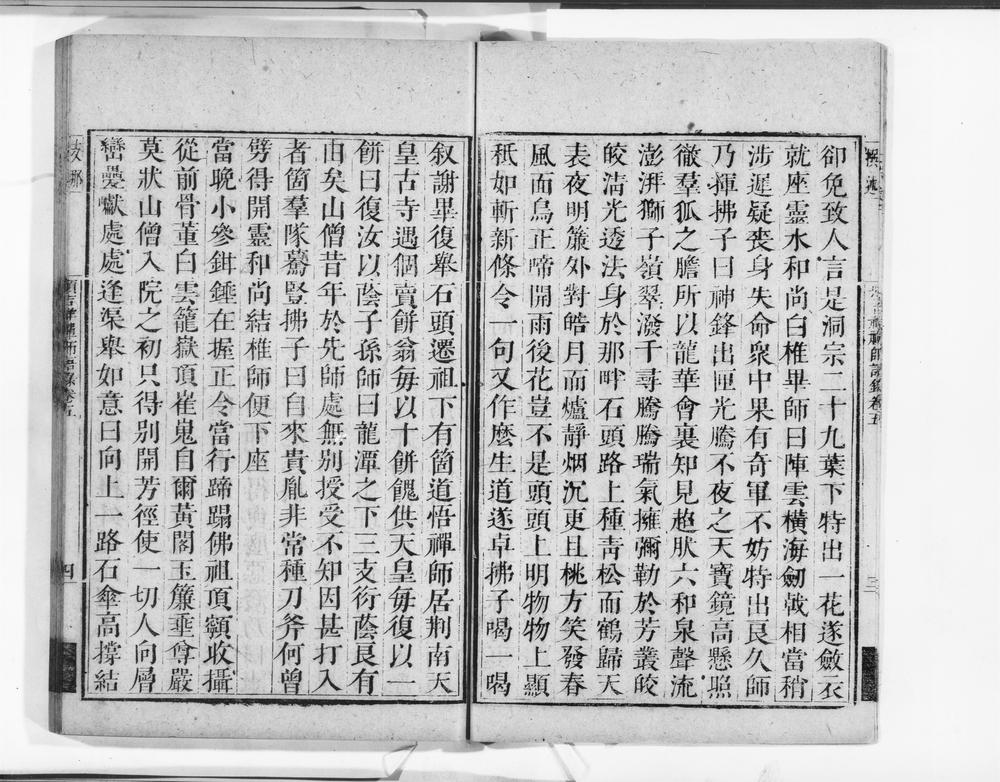 卻免致人言是洞宗二十九葉下特出一花遂斂衣
就座靈水和尚白椎畢師曰陣雲橫海劒㦸相當稍
涉遲疑喪身失命衆中果有奇軍不妨特出良久師
乃揮拂子曰神鋒出匣光騰不夜之天寶鏡高懸照
徹羣狐之膽所以龍華會裏知見趂肰六和泉聲流
澎湃獅子嶺翠潑千尋騰騰瑞氣擁彌勒於芳叢皎
皎淸光透法身於那畔石頭路上種靑松而鶴歸天
表夜明簾外對皓月而爐靜烟沉更且桃方笑發春
風面鳥正啼開雨後花豈不是頭頭上明物物上顯
秖如斬新條令一句又作麼生道遂卓拂子喝一喝
三
叙謝畢復舉石頭遷祖下有箇道悟禪師居荆南天
皇古寺遇個賣餅翁每以十餅餽供天皇每復以一
餅曰復汝以蔭子孫師曰龍潭之下三支衍蔭良有
由矣山僧昔年於先師處無别授受不知因甚打入
者箇羣隊驀豎拂子曰自來貴胤非常種刀斧何曾
劈得開靈和尚結椎師便下座
當晚小參鉗錘在握正令當行蹄蹋佛祖項顙收攝
從前骨董白雲籠嶽頂崔嵬自爾黃閣玉簾垂尊嚴
莫狀山僧入院之初只得别開芳徑使一切人向層
巒疊巘處處逢渠舉如意曰向上一路石傘高撐結
四